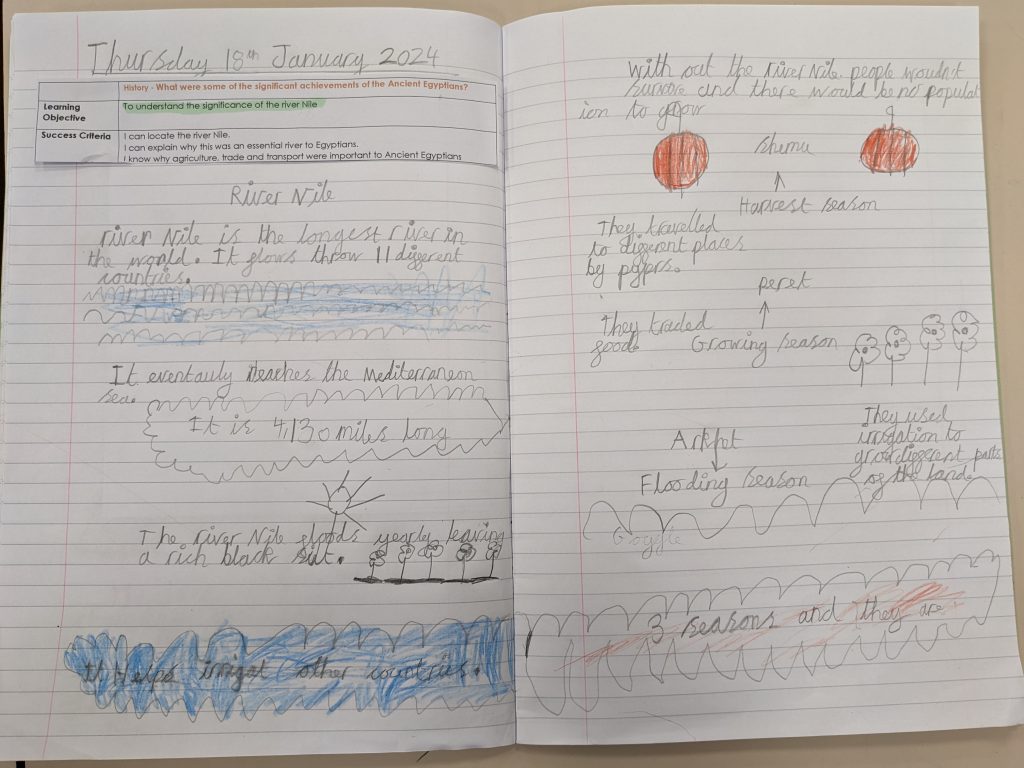 Thursday 18th January 2024
History - What were some of the significant achievements of the Ancient Egyptians?
Learning Objective
To understand the significance of the river Nile
Success Criteria
I can locate the river Nile.
I can explain why this was an essential river to Egyptians.
I know why agriculture, trade and transport were important to Ancient Egyptians
River Nile
river Nile is the longest river in
the world. It flows throw 11 different
countries.
It eventauly reaches the Mediterranean
sea.
It is 4,130 miles long
The river Nile floods yearly leaving
a rich black silt.
It Helps irrigat other countries.
With out the river Nile people wouldn't
survive and there would be no populat
ion to grow
Shemu
Harvest season
They travelled
to different places
by
peret
They traded
goods
Growing season
They used
irrigation to
grow different parts
of the land.
Flooding season
3 seasons and they are